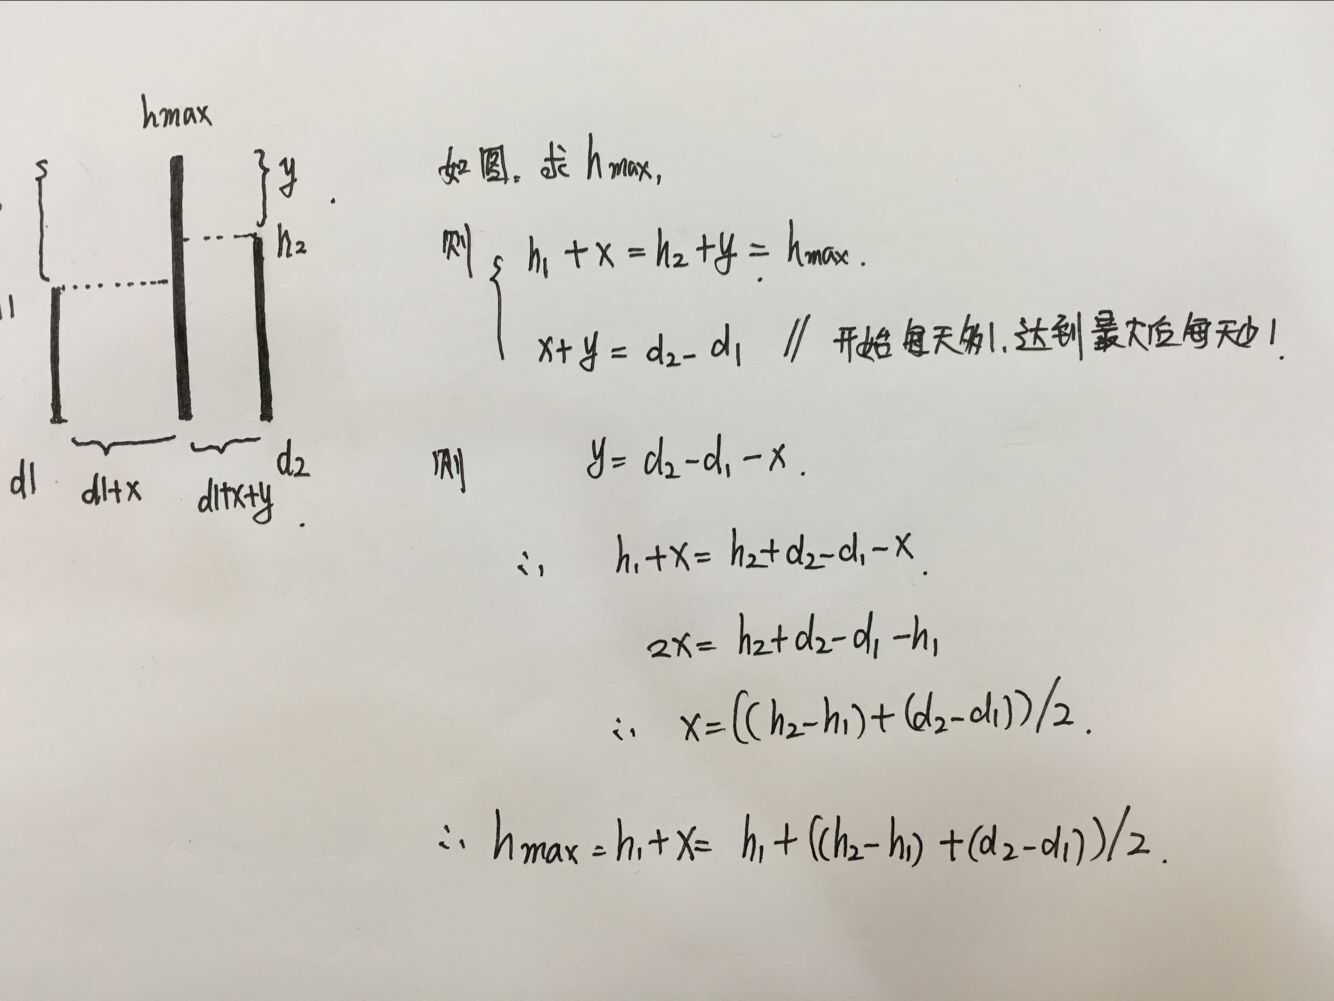 hmax
y
h2
11
d1
d1+x
d1+x+y
d2
如图. 求 hmax,
则 { h1 + x = h2 + y = hmax.
x + y = d2 - d1 // 开始每天多1. 达到最大后每天少1.
则 y = d2 - d1 - x.
∴ h1 + x = h2 + d2 - d1 - x.
2x = h2 + d2 - d1 - h1
∴ x = ((h2 - h1) + (d2 - d1))/2.
∴ hmax = h1 + x = h1 + ((h2 - h1) + (d2 - d1))/2.